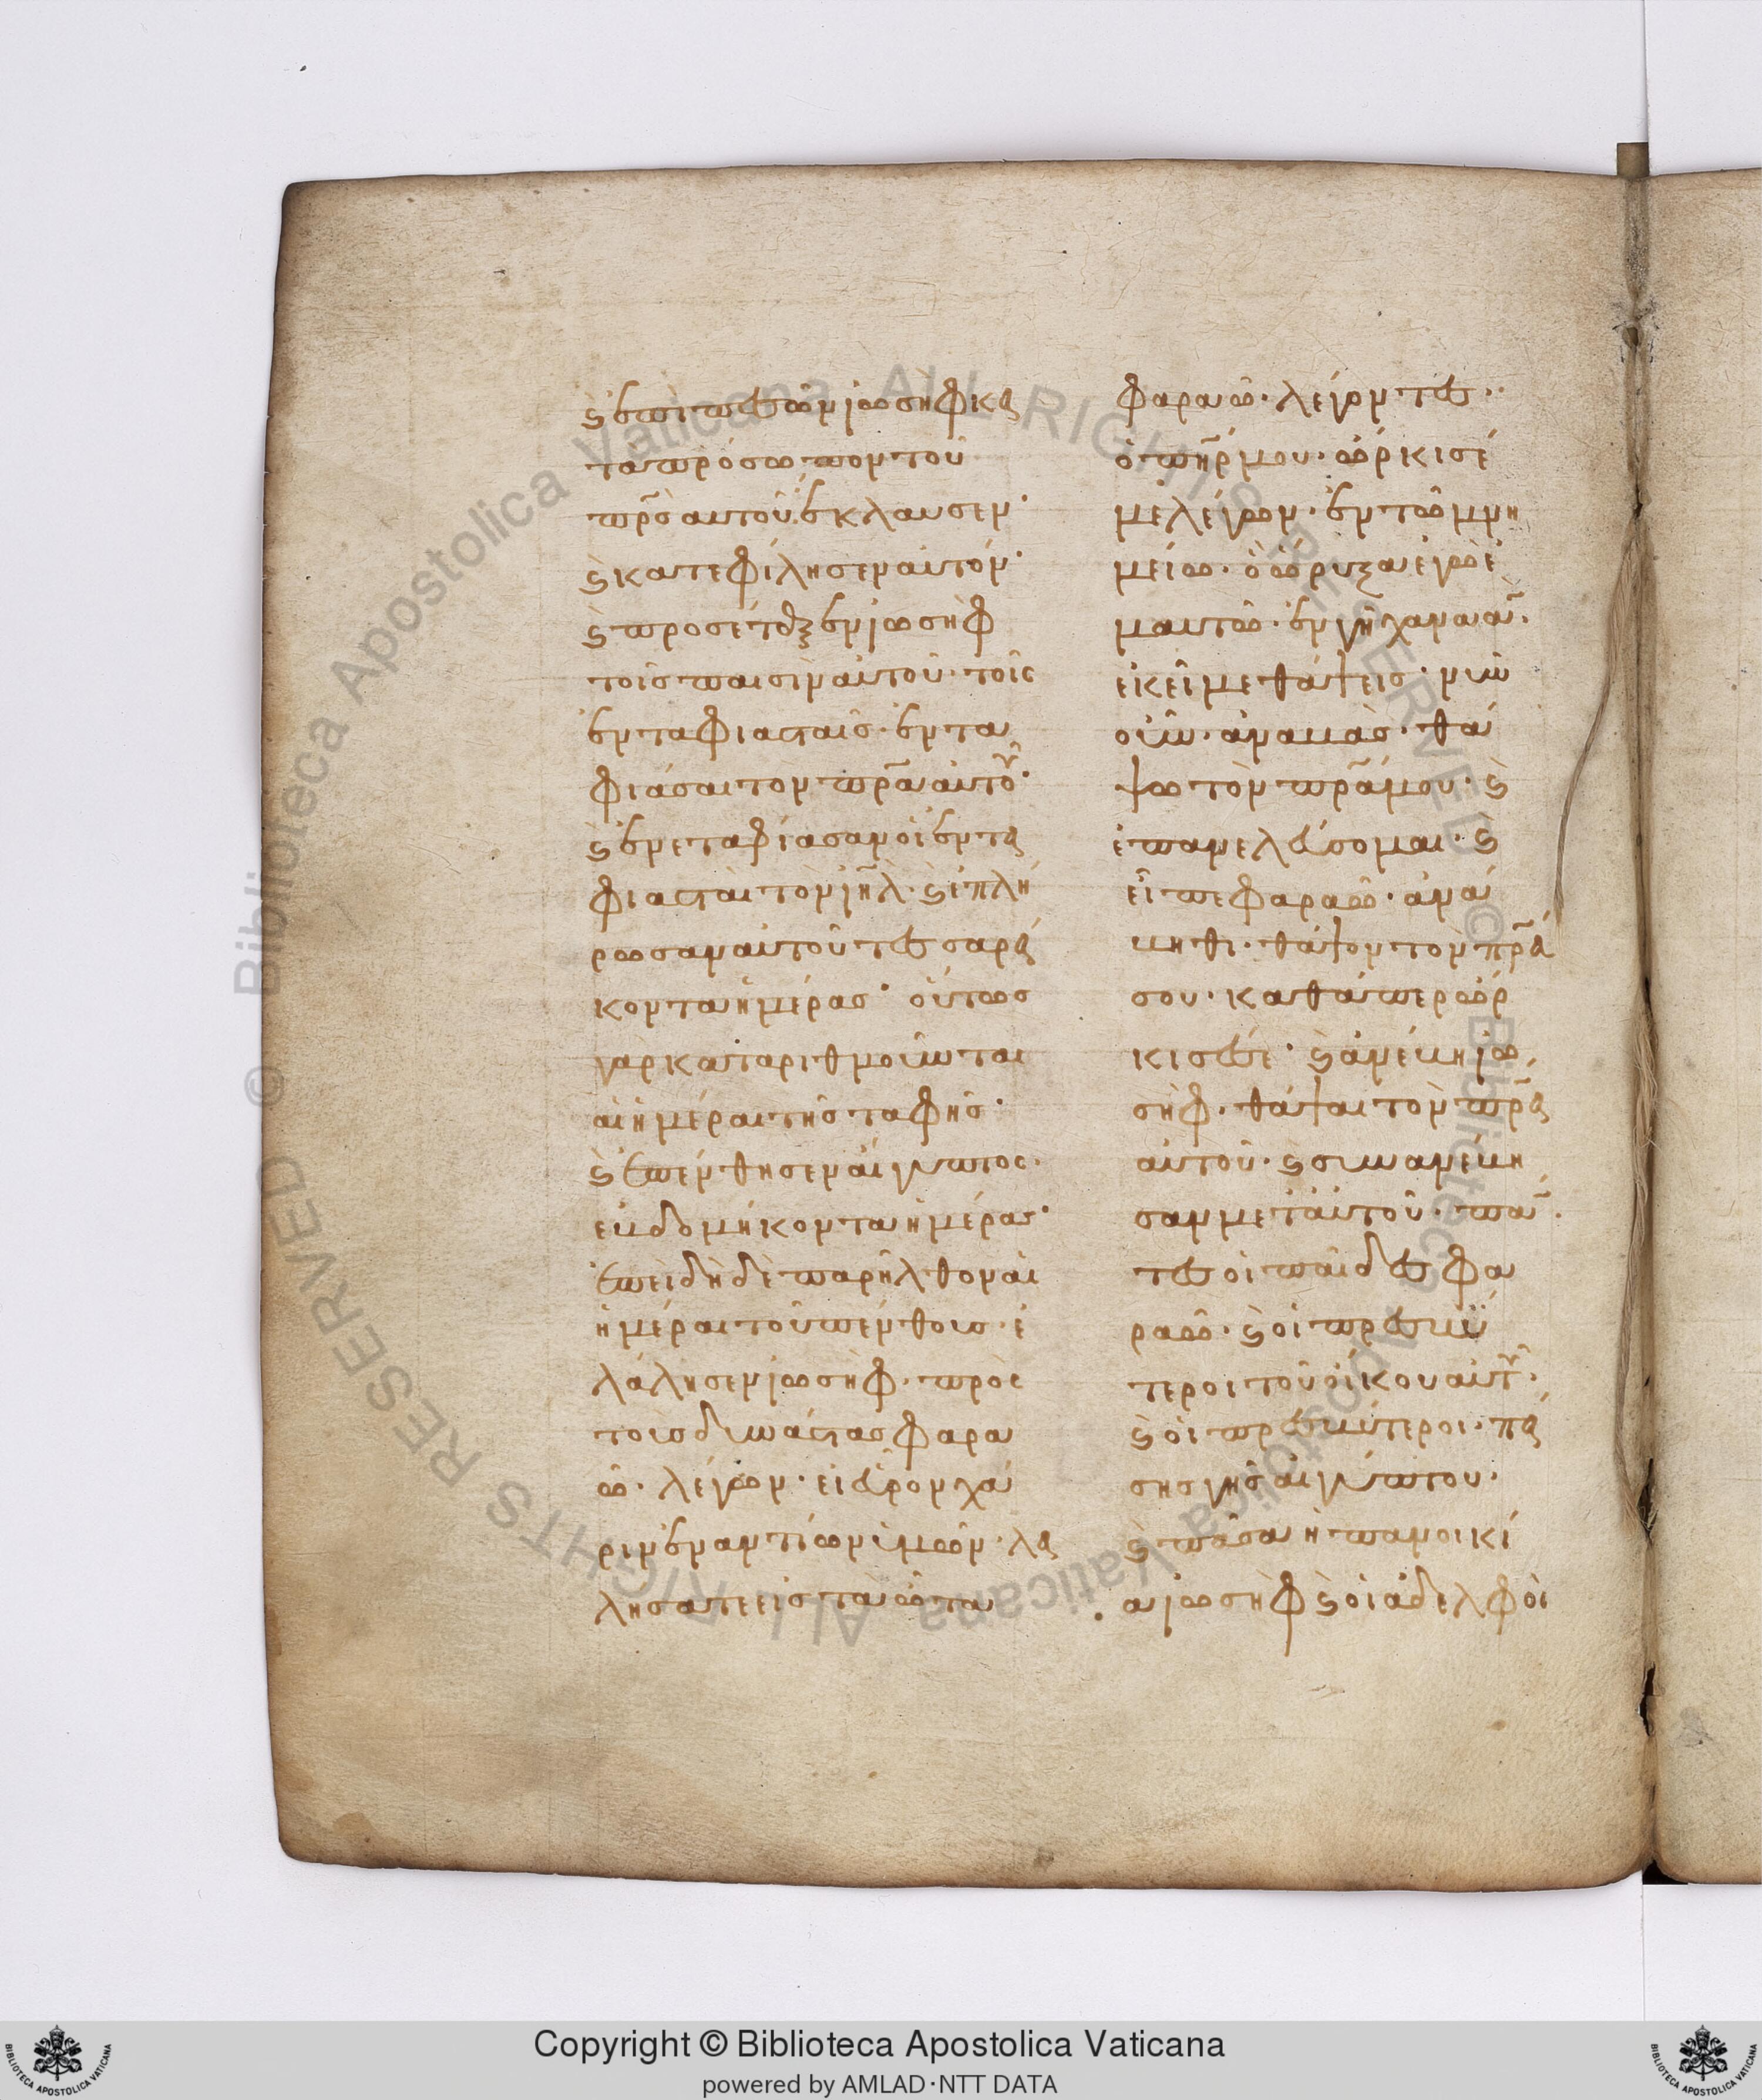 ϗ ἐπιπεσὼν ἰωσὴφ κα
τα πρόσωπον τοῦ
π̅ρ̅ς̅ αὐτοῦ· ἔκλαυσεν·
ϗ κατεφίλησεν αὐτόν·
ϗ προσέταξεν ἰωσὴφ
τοῖς παισὶν αὐτοῦ· τοῖς
ἐνταφιασταῖς· ἐντα
φιάσαι τον π̅ρ̅α̅ αὐτοῦ·
ϗ ἐνεταφίασαν οἱ ἐντα
φιασταὶ τὸν ι̅η̅λ̅· ϗ ἐπλή
ρωσαν αὐτοῦ τεσσαρά
κοντα ἡμέρας· οὕτως
γὰρ καταριθμοῦνται
αἱ ἡμέραι τῆς ταφῆς·
ϗ ἐπένθησεν αἴγυπτος·
ἑβδομήκοντα ἡμέρας·
ἐπειδὴ δὲ παρῆλθον αἱ
ἡμέραι τοῦ πένθους· ἐ
λάλησεν ἰωσὴφ· πρὸς
τοὺς δυνάστας φαρα
ῶ· λέγων· εἰ εὗρον χά
ριν ἐναντίων ὑμῶν· λα
λήσατε εἰς τὰ ὦτα
φαραῶ· λέγοντες··
ὁ π̅η̅ρ̅ μου· ὥρκισέ
με λέγων· ἐν τῶ μνη
μείω· ὃ ὤρυξα ἐγὼ ἐ
μαυτῶ· ἐν γῆ χανααν·
ἐκεῖ με θάψεις· νῦν
οὖν· ἀναβὰς· θά
ψω τὸν π̅ρ̅α̅ μου· ϗ
ἐπανελεύσομαι· ϗ
εἶπε φαραῶ· ἀνά
βηθι· θάψον τὸν π̅ρ̅α̅
σου· καθάπερ ὥρ
κισέ σε· ϗ ἀνέβη ἰω
σὴφ· θάψαι τὸν π̅ρ̅α̅
αὐτοῦ· ϗ συνανέβη
σαν μετ' αὐτοῦ· παν
τες οἱ παῖδες φα
ραῶ· ϗ οἱ πρεσβύ
τεροι τοῦ οἴκου αὐτοῦ·
ϗ οἱ πρεσβύτεροι· πά
σης γῆς αἰγύπτου·
ϗ πᾶσα ἡ πανοικί
α ἰωσὴφ ϗ οἱ ἀδελφοὶ
Copyright © Biblioteca Apostolica Vaticana
powered by AMLAD·NTT DATA